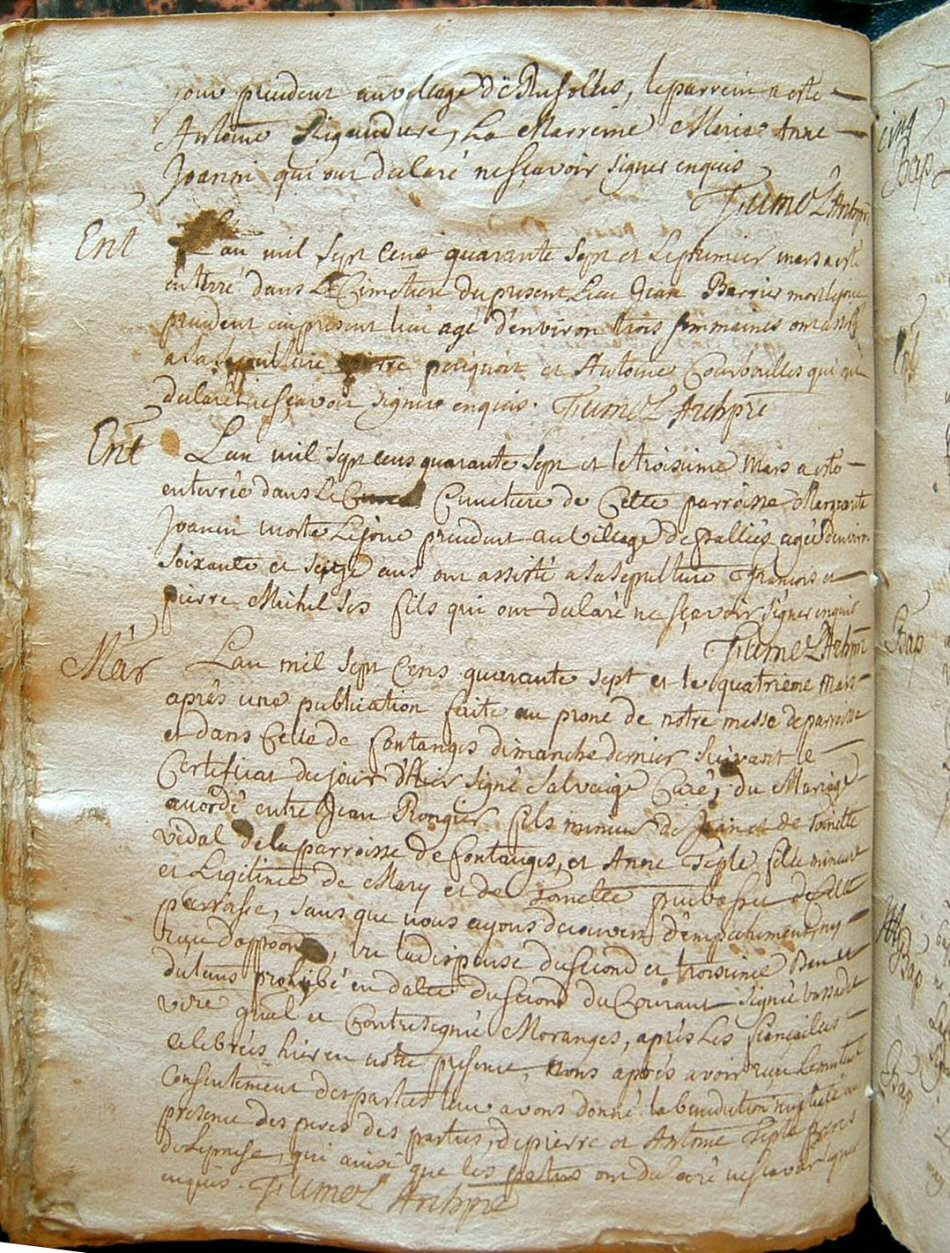 jour precedent au vilage de Rusolles, le parrein a esté
Antoine Rigaudiere, La Marreine Marie Anne
Joanni qui ont declaré ne sçavoir signer enquis
Fumel Archprē
Ent Lan mil sept cens quarante sept et le premier mars a esté
enterré dans Le Cimetiere du present Lieu Jean Barrier mort le jour
precedent au present lieu agé d'environ trois semmaines ont assisté
a la sepulture pierre peugnoit et Antoine Courboulles qui ont
declaré ne sçavoir signer enquis. Fumel Archprē
Ent Lan mil sept cens quarante sept et le troisieme Mars a esté
enterrée dans le Cimetiere de Cette parroisse Marguerite
Joanin morte Le jour precedent au Village de fallies agée d'environ
soixante et seize ans ont assisté a la sepulture François et
pierre Michel ses fils qui ont declaré ne sçavoir signer enquis
Fumel Archprē
Mar Lan mil sept Cens quarante sept et le quatrieme Mars
après une publication faite au prone de notre messe de parroisse
et dans Celle de fontanges dimanche dernier suivant le
Certificat du jour d'hier signé Salvaige Curé, du Mariage
accordé entre Jean Rongier fils mineur de Jean et de Toinette
vidal de la parroisse de fontanges, et Anne Teple fille mineure
et Legitime de Mary et de Toinette de Cette
parroisse, sans que nous ayons decouvert d'empechement, ny
reçu d'opposition, vu la dispense du second et troisieme Ban et
du tems prohibé en datte du second du Courant signée
vire gnal et Contresigné Moranges, après Les fiancailles
celebrées hier en notre presence, Nous après avoir reçu Le mutuel
Consentement des parties leur avons donné la benediction nuptiale en
presence des peres des parties, de pierre et Antoine Teple freres
de L'epouse, qui ainsi que les parties ont declaré ne sçavoir signer
enquis. Fumel Archprē